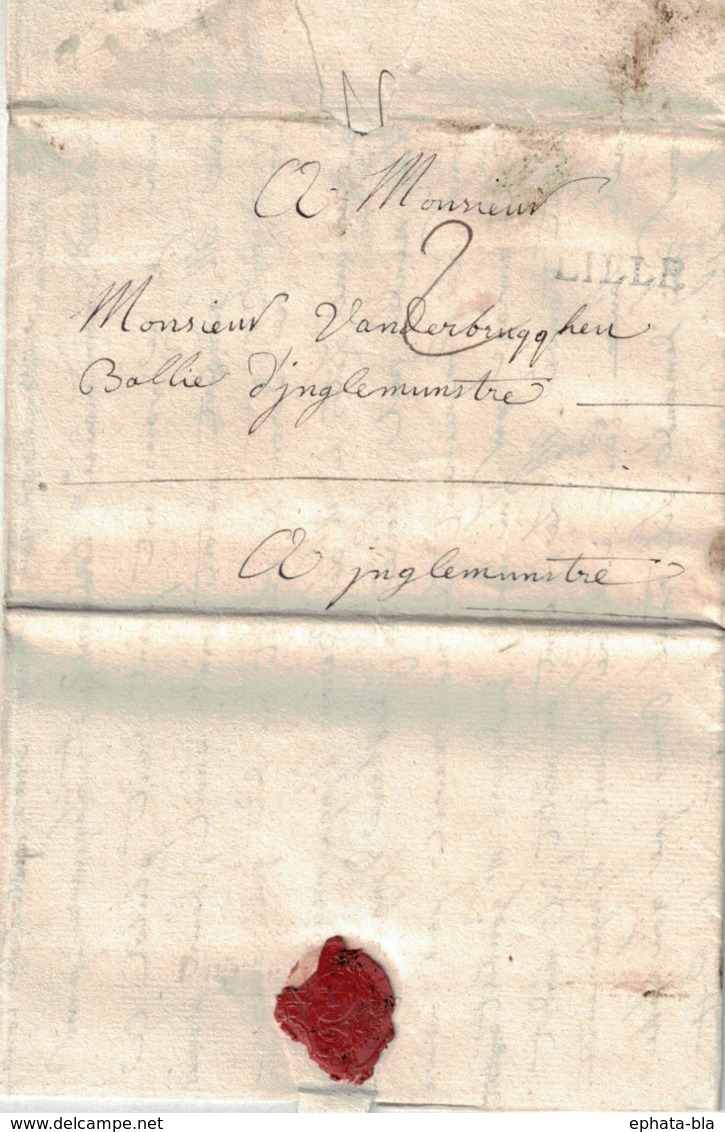 N
A Monsieur
2
LILLE
Monsieur Vanderbrugghen
Ballie D'jnglemunstre
A jnglemunstre
delcampe.net
ephata-bla